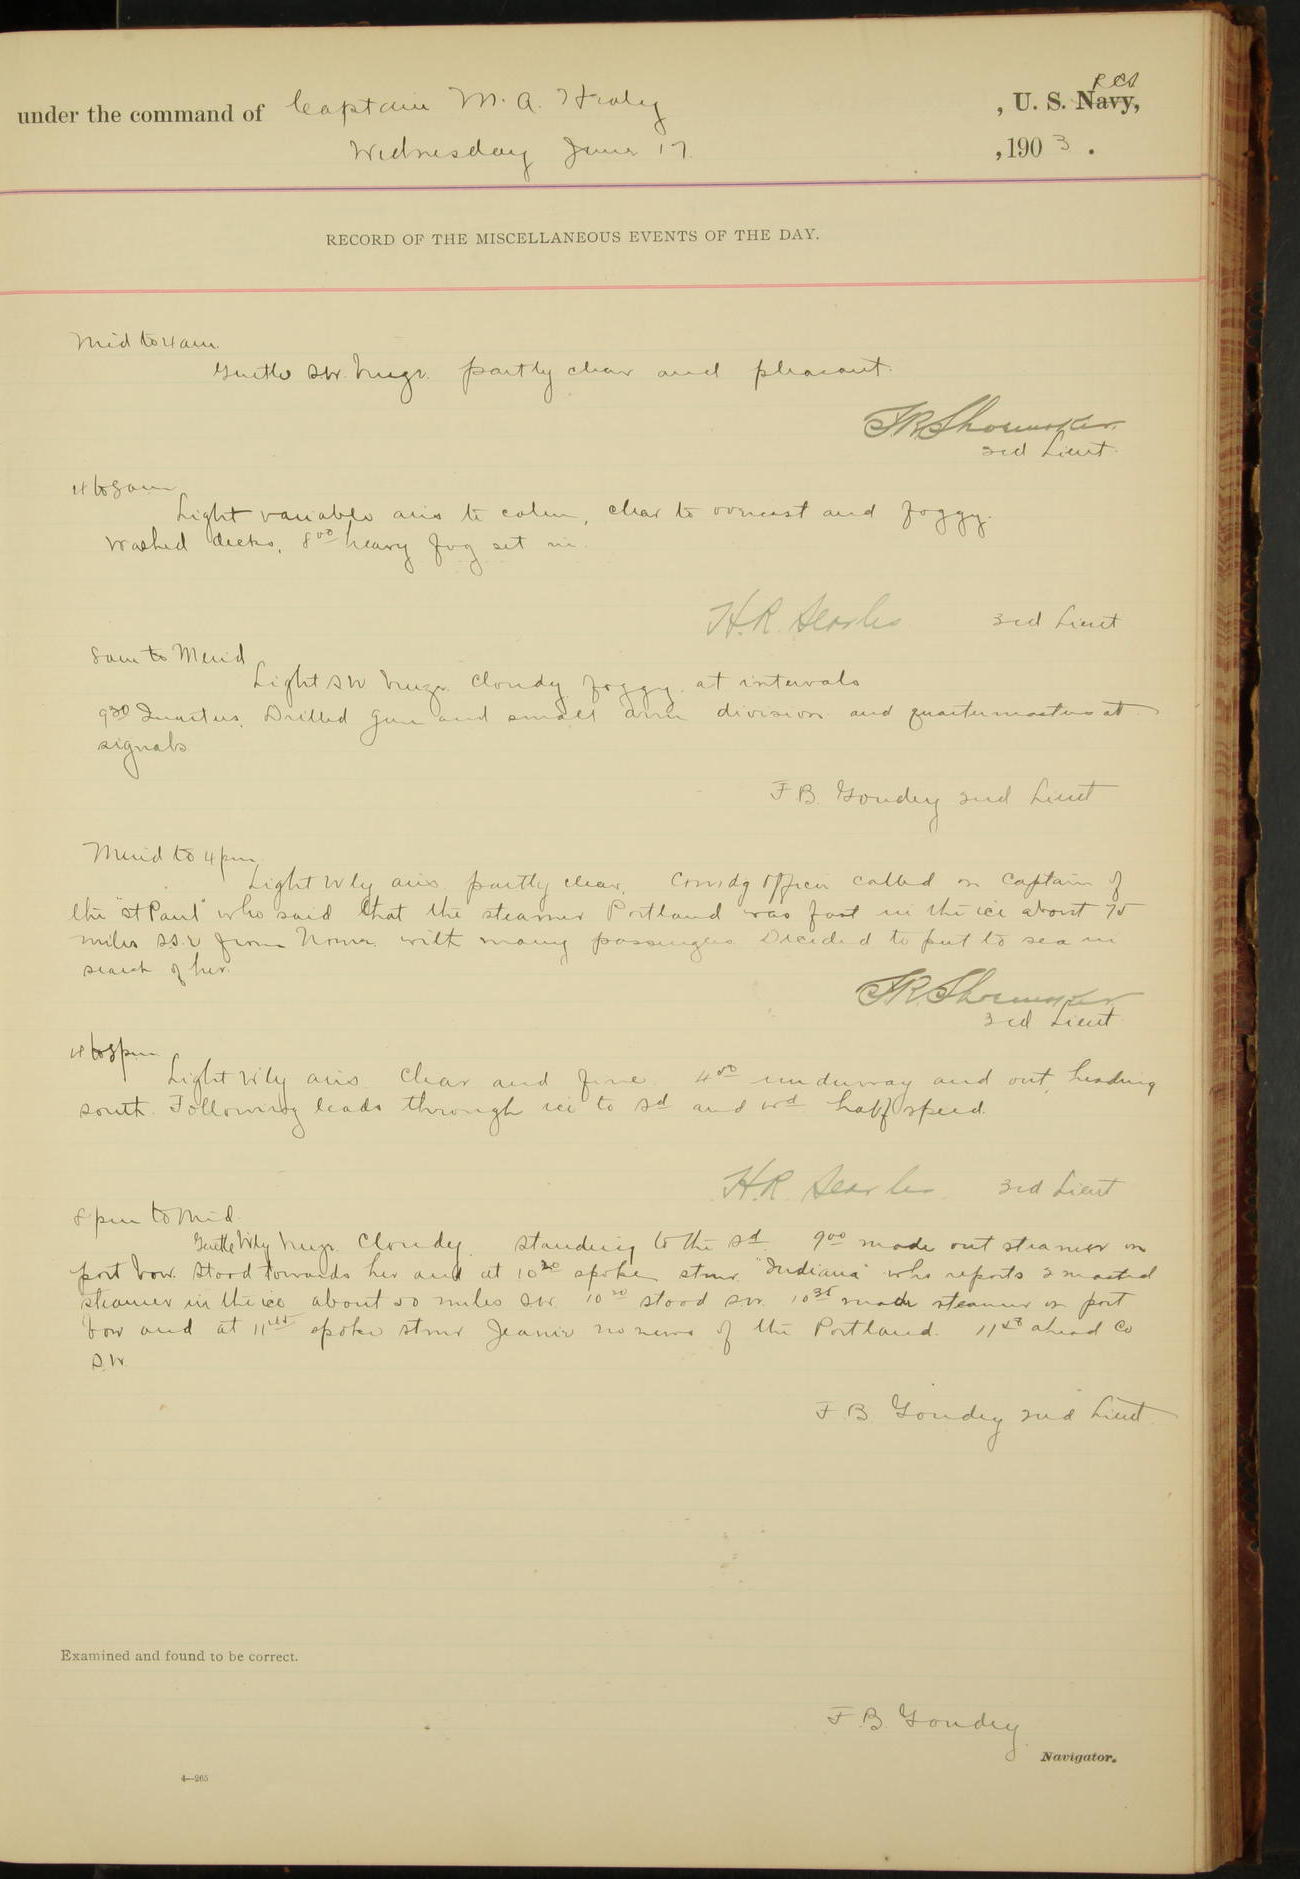 under the command of Captain M. A. Healy , U. S. Navy, RCS
Wednesday June 17 , 190 3 .
RECORD OF THE MISCELLANEOUS EVENTS OF THE DAY.
Mid to 4 am.
Gentle SW. breeze. partly clear and pleasant.
F.R. Shoemaker.
3rd Lieut.
4 to 8 am
Light variable airs to calm, clear to overcast and foggy.
Washed decks. 8 00 heavy fog set in.
H.R. Searles 3rd Lieut
8 am to Merid
Light SW breeze cloudy foggy at intervals
9 30 Quarters. Drilled gun and small arm division and quartermasters at
signals
F B. Goudey 2nd Lieut
Merid to 4 pm.
Light Wly airs partly clear. Comdg Officer called on Captain of
the "St Paul" who said that the steamer Portland was fast in the ice about 75
miles from Nome with many passengers Decided to put to sea in
search of her.
F.R. Shoemaker
3rd Lieut
4 to 8 pm
Light Wly airs Clear and fine. 4 50 underway and out, heading
south. Following leads through ice to Sd and Wd half speed.
H.R. Searles 3rd Lieut
8 pm to Mid.
Gentle Wly breeze Cloudy. Standing to the Sd. 9 00 made out steamer on
port bow. Stood towards her and at 10 20 spoke stmr. "Indiana" who reports 2 masted
steamer in the ice about 50 miles SW. 10 30 stood SW. 10 35 made steamer on port
bow and at 11 spoke stmr Jeanie no news of the Portland. 11 ahead Co
S.W.
F. B. Goudey 2nd Lieut
Examined and found to be correct.
F. B. Goudey
Navigator.
4—265